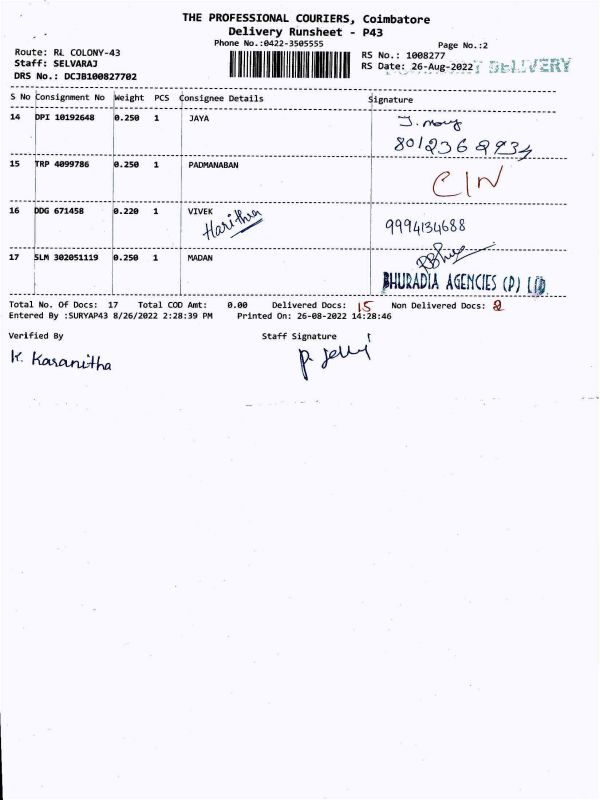 THE PROFESSIONAL COURIERS, Coimbatore
Delivery Runsheet - P43
Phone No.:0422-3505555
Page No.:2
Route: RL COLONY-43
RS No.: 1008277
Staff: SELVARAJ
RS Date: 26-Aug-2022
DELIVERY
DRS No.: DCJB100827702
S No Consignment No Weight PCS Consignee Details Signature
14 DPI 10192648 0.250 1 JAYA
8012362934
15 TRP 4099786 0.250 1 PADMANABAN
CIN
16 DDG 671458 0.220 1 VIVEK
Harithra
9994134688
17 SLM 302051119 0.250 1 MADAN
BHURADIA AGENCIES (P) LTD
Total No. Of Docs: 17 Total COD Amt: 0.00 Delivered Docs: 15 Non Delivered Docs: 2
Entered By :SURYAP43 8/26/2022 2:28:39 PM Printed On: 26-08-2022 14:28:46
Verified By Staff Signature
K. Kasanitha